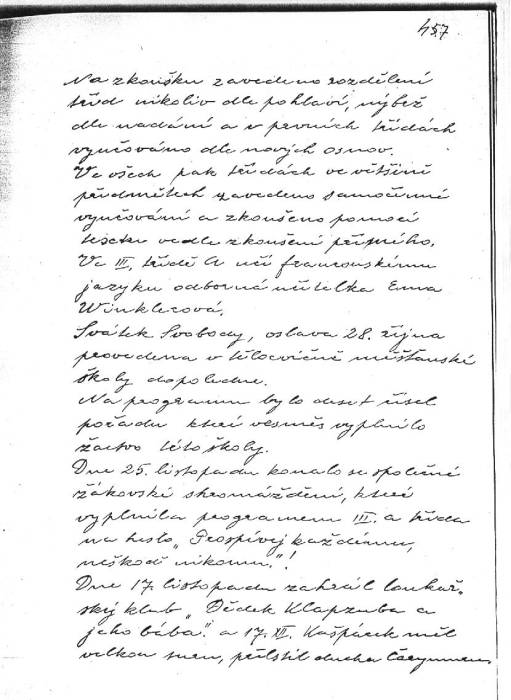 457
Na zkoušku zavedeno rozdělení
tříd nikoliv dle pohlaví, nýbrž
dle nadání a v prvních třídách
vyučováno dle nových osnov.
Ve všech pak třídách ve většině
předmětech zavedeno samočinné
vyučování a zkoušeno pomocí
textu vedle zkoušení přísného.
Ve III. třídě A učí francouzskému
jazyku odborná učitelka Emma
Winklerová.
Svátek Svobody, oslava 28. října
provedena v tělocvičně měšťanské
školy dopoledne.
Na programu bylo deset čísel
pořadu které vesměs vyplnilo
žactvo této školy.
Dne 25. listopadu konalo se společné
žákovské shromáždění, které
vyplnila programem III. a třída
na heslo „Prospívej každému,
neškoď nikomu."!
Dne 17. listopadu zahrál loutkář-
ský klub „Dědek Klapzuba a
jeho bába". a 17. XII. Kašpárek měl
velkou suen, přelstil ducha